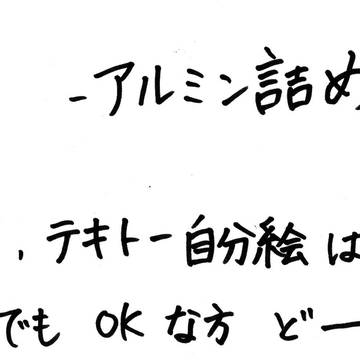 -アルミン詰め
、テキトー自分絵は
でも OK な方 どー